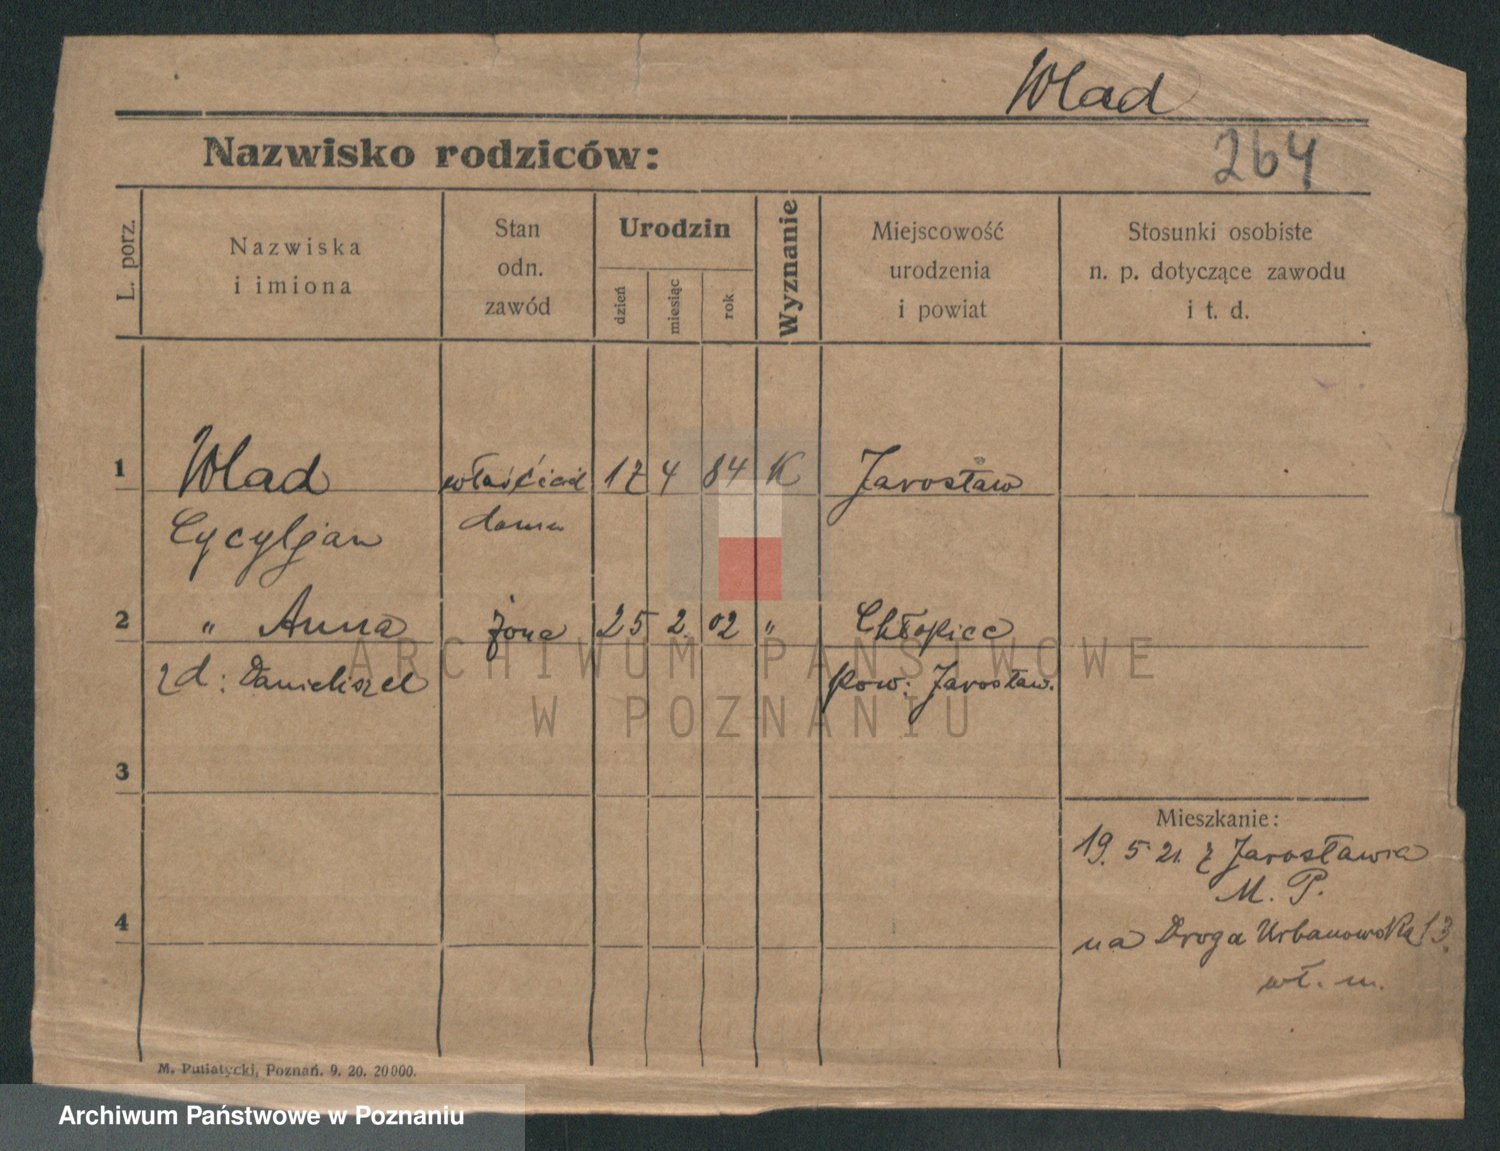 Wlad
264
Nazwisko rodziców:
L. porz.
Nazwiska
i imiona
Stan
odn.
zawód
Urodzin
dzień
miesiąc
rok
Wyznanie
Miejscowość
urodzenia
i powiat
Stosunki osobiste
n. p. dotyczące zawodu
i t. d.
1 Wlad właściciel 17 4 84 K Jarosław
Cycyljan domu
2 " Anna żona 25 2. 02 " Chłopice
zd: pow: Jarosław.
3
Mieszkanie:
19. 5 21. z Jarosławia
M. P.
4
na Droga Urbanowska 13.
wł. m.
M. Putiatycki, Poznań. 9. 20. 20000.
ARCHIWUM PAŃSTWOWE
W POZNANIU
Archiwum Państwowe w Poznaniu